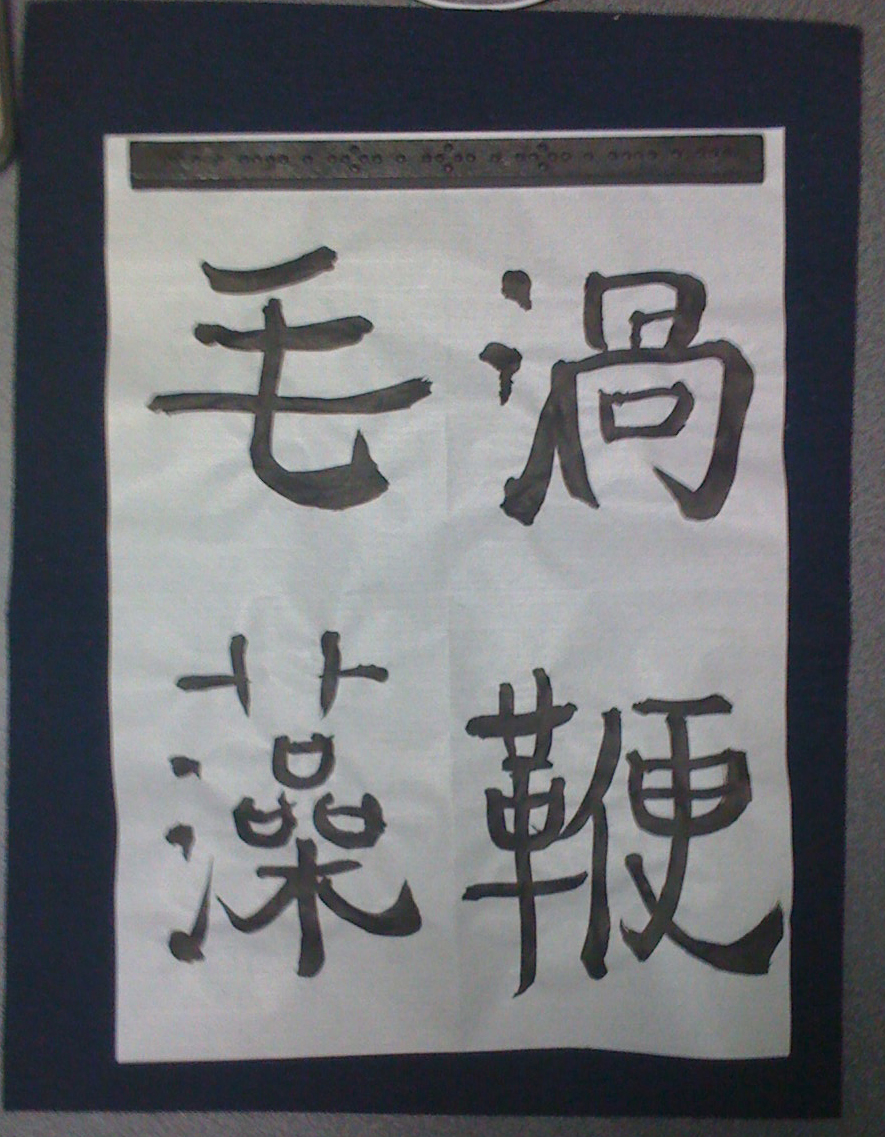 渦鞭
毛藻